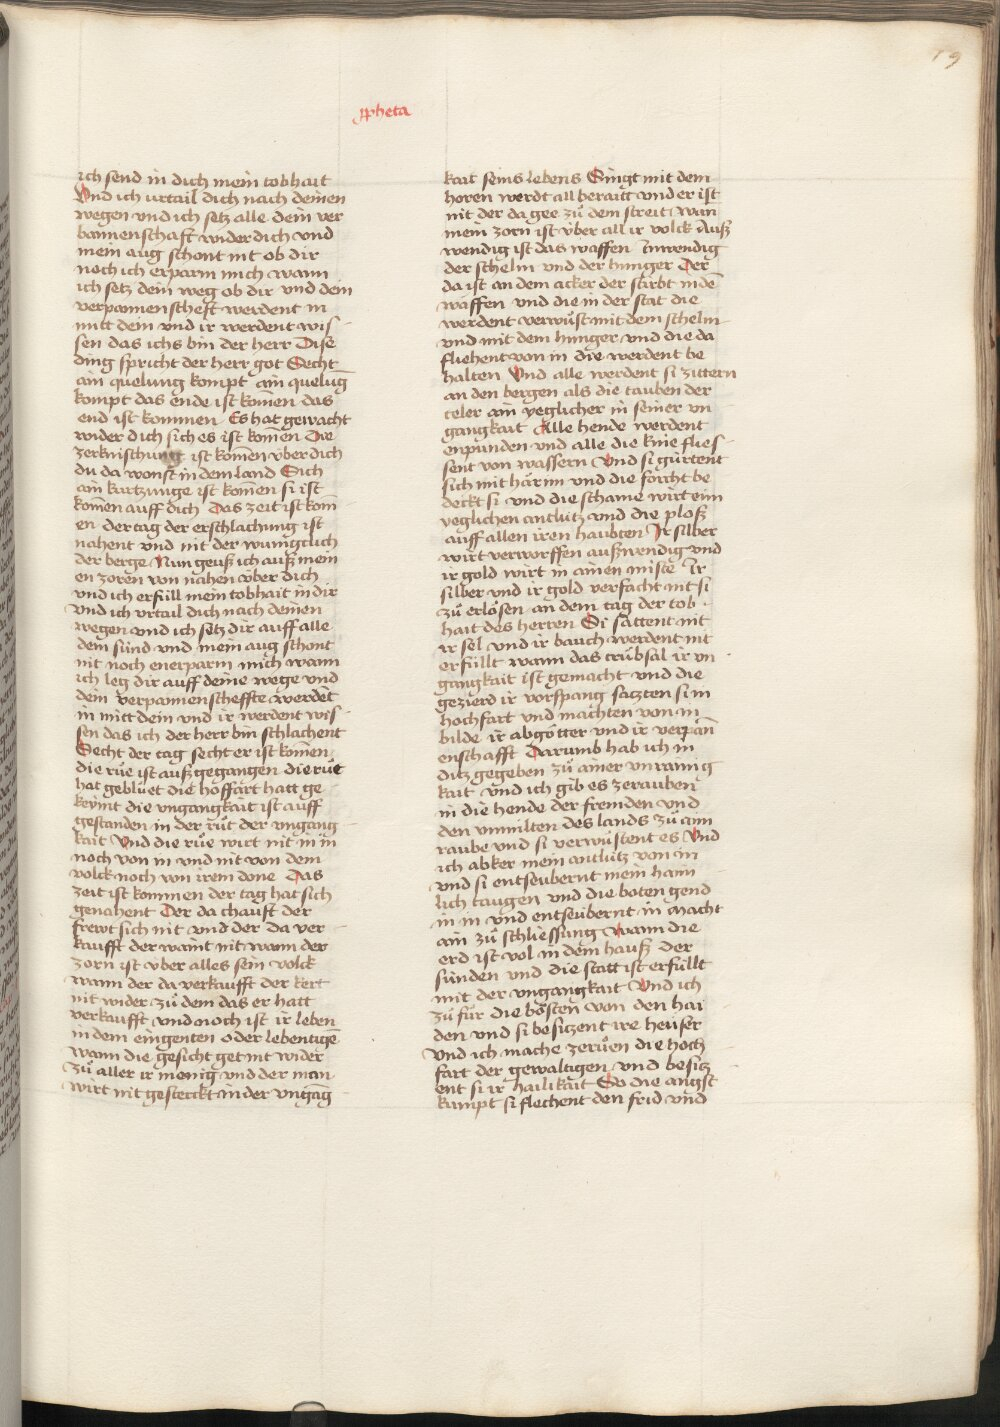 19
ꝓheta
ich send in dich mein tobhait
Vnd ich vrtail dich nach deinen
wegen vnd ich setz alle dein ver
bannenschaft wider dich vnd
mein aug schont nit ob dir
noch ich erparm mich wann
ich setz dein weg ob dir vnd dein
verpannenscheft werdent in
mitt dein vnd ir werdent wis-
sen das ichs bin der herr Dise
ding spricht der herr got Secht
ain quelung kompt ain quelūg
kompt das ende ist komen das
end ist kommen Es hat gewacht
wider dich sich es ist komen Die
zerknischung ist komen v̈ber dich
du da wonst in dem land Sich
ain kurtzunge ist komen si ist
komen auff dich Das zeit ist kom
en der tag der erschlachung ist
nahent vnd nit der wunigclich
der berge Nun geuß ich auß mein
en zoren von nahen v̈ber dich
vnd ich erfüll mein tobhait in dir
vnd ich vrtail dich nach deinen
wegen vnd ich setz dir auff alle
dein sünd vnd mein aug schont
nit noch enerparm mich wann
ich leg dir auff deine wege vnd
dein verpannenscheffte werdēt
in mitt dein vnd ir werdent wis-
sen das ich der herr bin schlachent
Secht der tag secht er ist komen
die růe ist auß gegangen die růt
hat geblüet die hoffart hatt ge-
keymt die vngangkait ist auff
gestanden in der růt der vngang
kait Vnd die růe wirt nit in in
noch von in vnd nit von dem
volck noch von irem done Das
zeit ist kommen der tag hat sich
genahent Der da chauft der
frewt sich nit vnd der da ver
kaufft der waint nit wann der
zorn ist v̈ber alles sein volck
wann der da verkaufft der kert
nit wider zů dem das er hatt
verkaufft vnd noch ist ir leben
in dem eingenten oder lebentigē
wann die gesicht get nit wider
zů aller ir menig vnd der man
wirt nit gesterckt in der vngāg
kait seins lebens Singt mit dem
horen werdt all beraitt vnd er ist
nit der da gee zů dem streit wan
mein zorn ist v̈ber all ir volck Auß
wendig ist das waffen Inwendig
der schelm vnd der hunger Der
da ist an dem acker der stirbt in dē
waffen vnd die in der stat die
werdent verwůst mit dem schelm
vnd mit dem hunger vnd die da
fliehent von in die werdent be
halten Vnd alle werdent si zittern
an den bergen als die tauben der
teler ain yeglicher in seiner vn
gangkait Alle hende werdent
enpunden vnd alle die knie flies-
sent von wassern Vnd si gürtent
sich mit härinn vnd die forcht be
deckt si vnd die schame wirt einn
yeglichen antlütz vnd die ploß
auff allen iren haubten Ir silber
wirt verworffen außwendig vnd
ir gold wirt in ainen miste Ir
silber vnd ir gold verfacht nit si
zů erlösen an dem tag der tob-
hait des herren Si sattent nit
ir sel vnd ir bauch werdent nit
erfüllt wann das trübsal ir vn-
gangkait ist gemacht vnd die
gezierd ir vorspang satzten si in
hochfart vnd machten von in
bilde ir abgötter vnd ir verpan
enschafft Darumb hab ich in
ditz gegeben zů ainer vnrainig
kait vnd ich gib es zerauben
in die hende der fremden vnd
den vnmilten des lands zů ainn
raube vnd si verwüstent es Vnd
ich abker mein antlütz von in
vnd si entseubernt mein haim
lich taugen vnd die boten gend
in in vnd entseübernt in Macht
ain zů schliessung wann die
erd ist vol in dem hauß der
sünden vnd die statt ist erfüllt
mit der vngangkait Vnd ich
zů für die bösten von den hai
den vnd si besitzent ire heüser
Vnd ich mache zerůen die hoch
fart der gewaltigen vnd besitz
ent si ir hailikait So die angst
kumpt si flechent den frid vnd